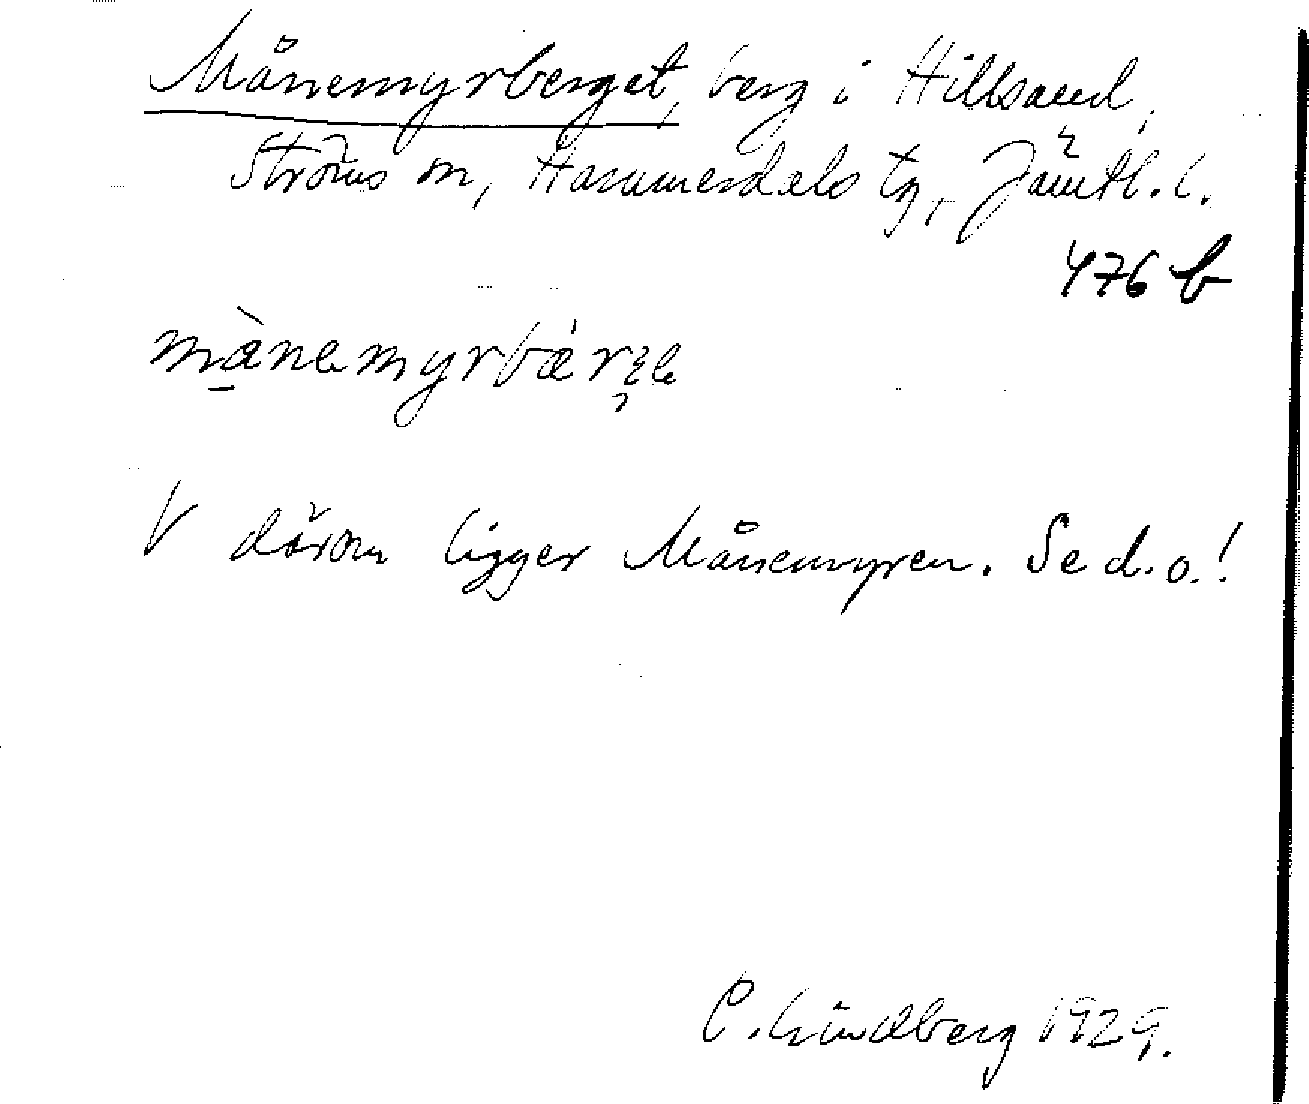 Månemyrberget, berg i Hillsand,
Ströms sn, Hammerdals tg, Jämtl. l.
476 b
V därom ligger Månemyren. Se d.o.!
C. Lindberg 1929.